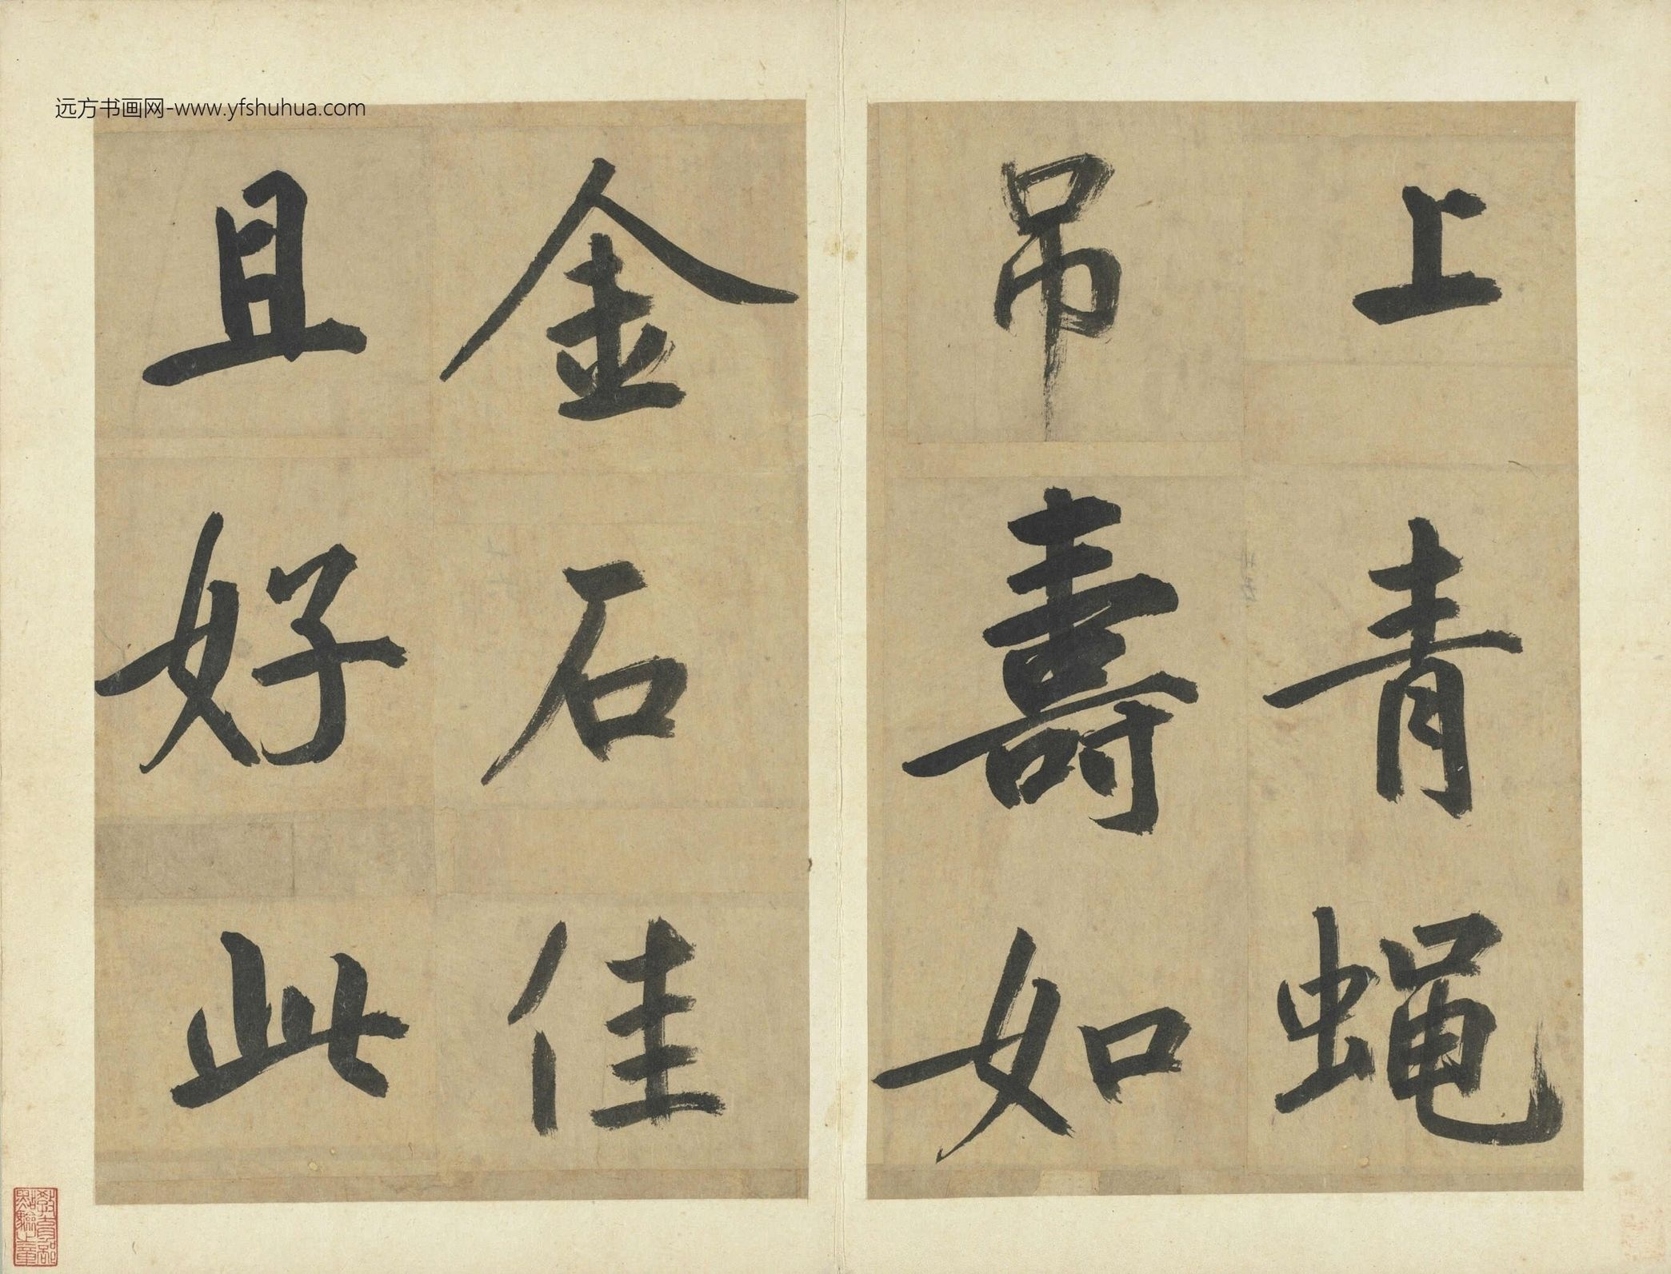 远方书画网-www.yfshuhua.com
上青蝇
吊壽如
金石佳
且好此